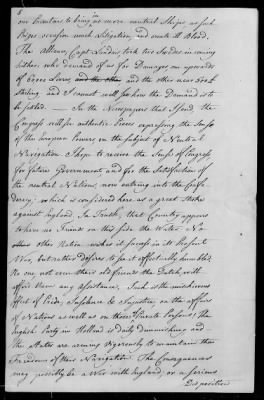 our Cruisers to bring in no more neutral Ships as such
Prizes occasion much Litigation, and much ill Blood.
The Alliance, Capt Landais took two Swedes in coming
hither, who demand of us for Damages, one upwards
of 60,000 Livres, and the other near 500 £
sterling, and I cannot well see how the Demand is to
be settled. — In the Newspapers that I send, the
Congress will see authentic Pieces expressing the Sense
of the European Powers on the Subject of Neutral
Navigation. I hope to receive the Sense of Congress
for future Government, and for the Satisfaction of
the neutral Nations, now entering into the Confe
deracy; which is considered here as a great stroke
against England. In Truth, that Country appears
to have no Friends on this Side the Water. No
other Nation wishes it success in its present
War, but rather desires to see it effectually humbled;
No one, not even their old friends the Dutch, will
afford them any Assistance. Such is the mischievous
effect of Pride, Insolence & Injustice on the affairs
of Nations as well as on those of Private Persons. The
English Party in Holland is daily diminishing, and
the States are arming vigorously to maintain the
Freedom of their Navigation. The Consequence
may possibly be a War with England, or a serious
Disposition